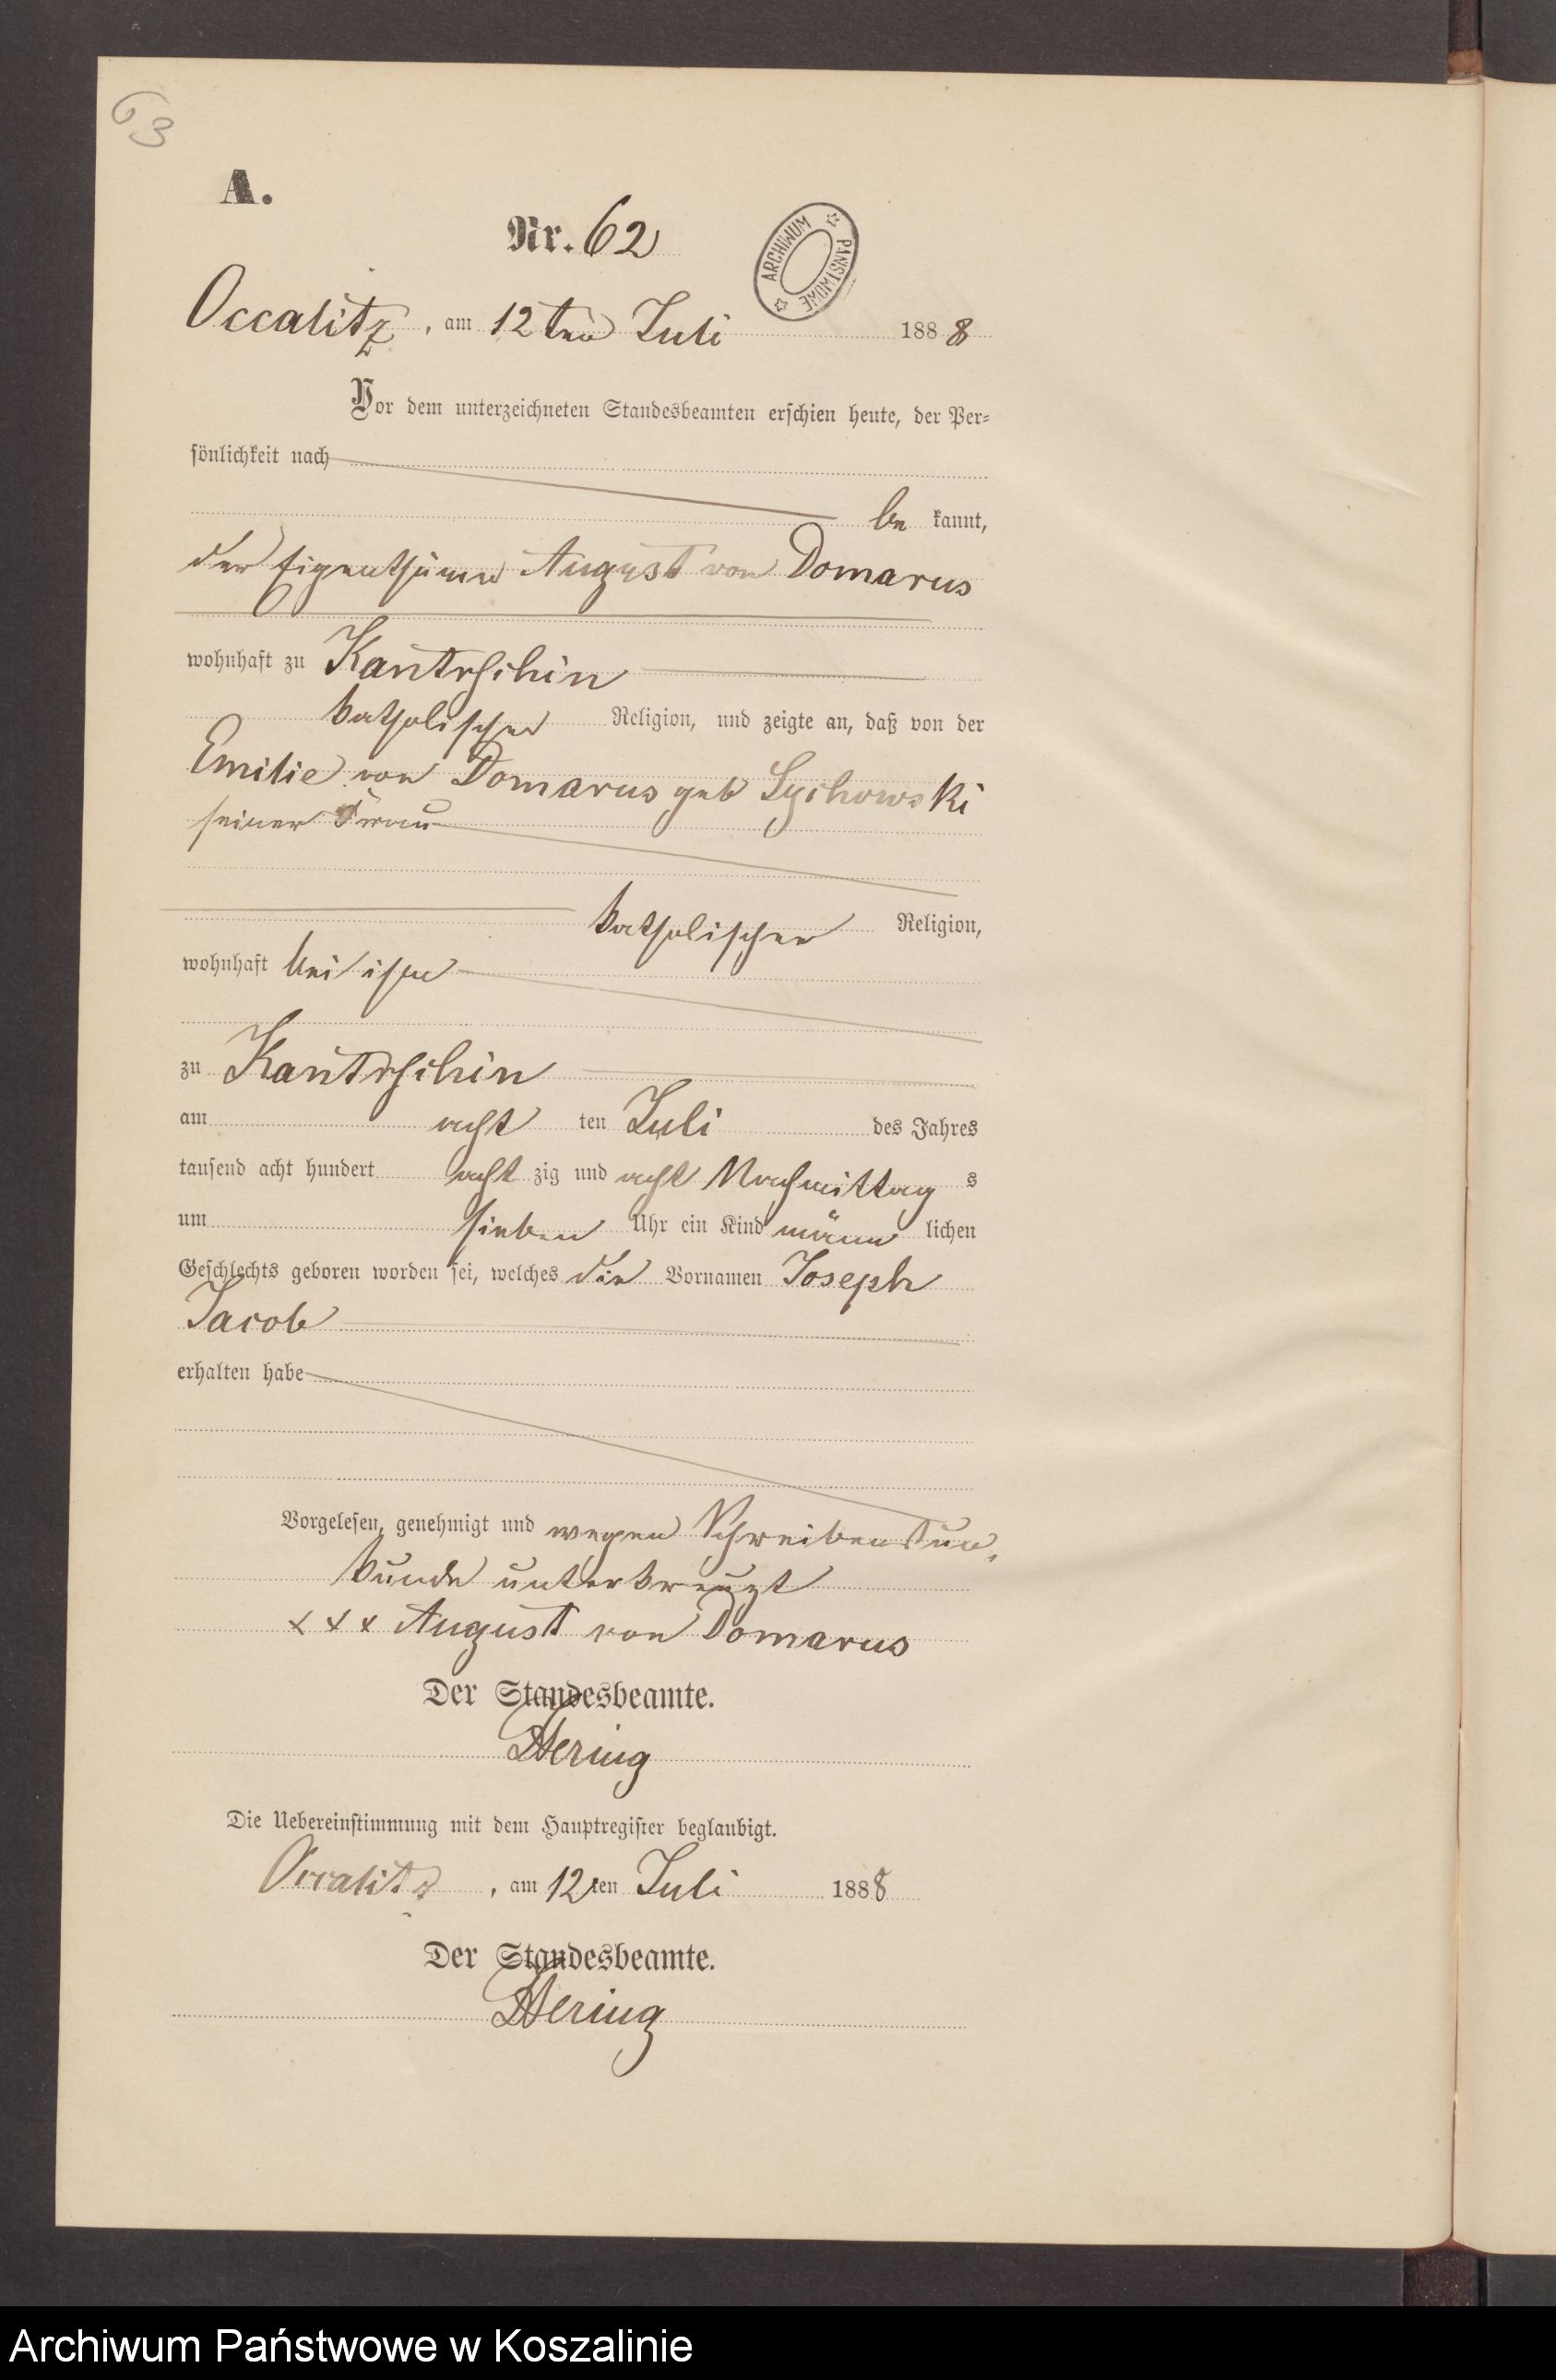 63
A.
Nr. 62
ARCHIWUM PAŃSTWOWE
Occalitz, am 12ten Juli 1888
Vor dem unterzeichneten Standesbeamten erschien heute, der Per=
sönlichkeit nach
be kannt,
der Eigenthümer August von Domarus
wohnhaft zu Kantrschin
katholischer Religion, und zeigte an, daß von der
Emilie von Domarus geb
seiner Frau
katholischer Religion,
wohnhaft bei ihm
zu Kantrschin
am acht ten Juli des Jahres
tausend acht hundert acht zig und acht Nachmittag s
um sieben Uhr ein Kind männ lichen
Geschlechts geboren worden sei, welches die Vornamen Joseph
Jacob
erhalten habe
Vorgelesen, genehmigt und wegen Schreibensun-
kunde unterkreuzt
xxx August von Domarus
Der Standesbeamte.
Hering
Die Uebereinstimmung mit dem Hauptregister beglaubigt.
Occalitz, am 12ten Juli 1888
Der Standesbeamte.
Hering
Archiwum Państwowe w Koszalinie